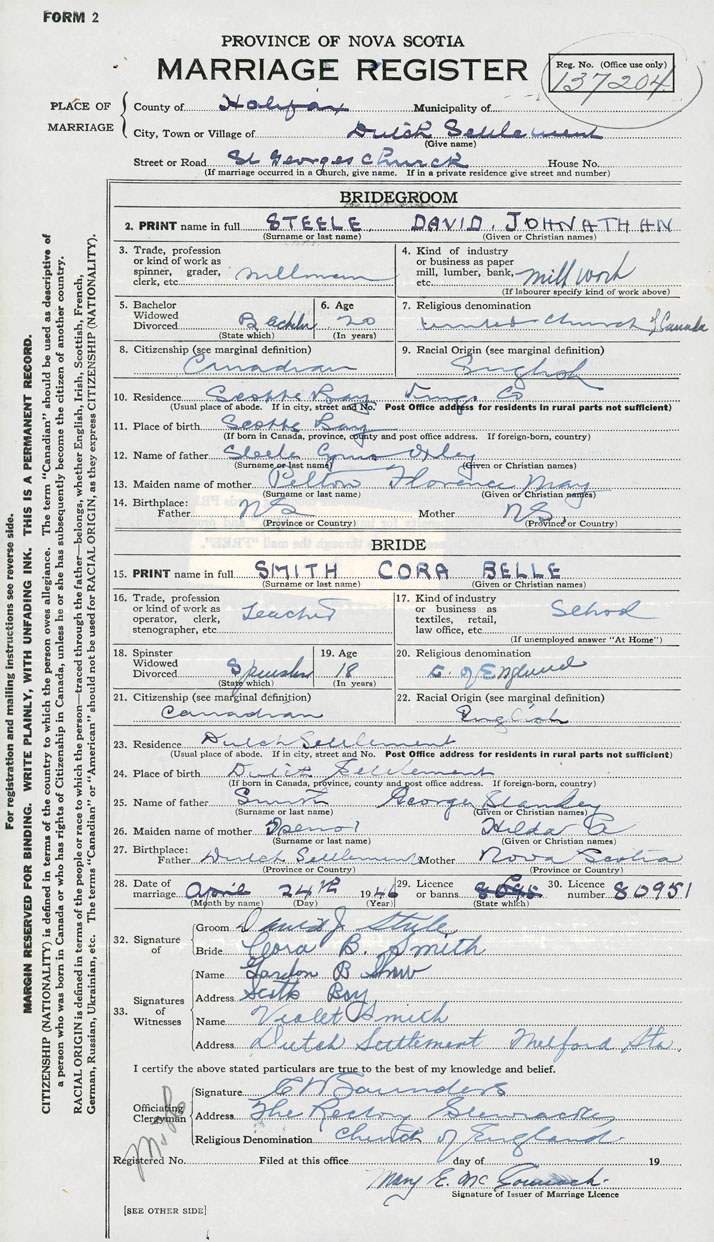 FORM 2
PROVINCE OF NOVA SCOTIA
MARRIAGE REGISTER
Reg. No. (Office use only)
137204
PLACE OF MARRIAGE
County of Halifax Municipality of
City, Town or Village of Dutch Settlement
(Give name)
Street or Road St Georges Church House No.
(If marriage occurred in a Church, give name. If in a private residence give street and number)
BRIDEGROOM
2. PRINT name in full STEELE DAVID JOHNATHAN
(Surname or last name) (Given or Christian names)
3. Trade, profession or kind of work as spinner, grader, clerk, etc. millman
4. Kind of industry or business as paper mill, lumber, bank, etc. Mill work
(If labourer specify kind of work above)
5. Bachelor Widowed Divorced Bachelor
(State which)
6. Age 20
(In years)
7. Religious denomination United Church of Canada
8. Citizenship (see marginal definition) Canadian
9. Racial Origin (see marginal definition) English
10. Residence Scotts Bay Kings Co
(Usual place of abode. If in city, street and No. Post Office address for residents in rural parts not sufficient)
11. Place of birth Scotts Bay
(If born in Canada, province, county and post office address. If foreign-born, country)
12. Name of father Steele
(Surname or last name) (Given or Christian names)
13. Maiden name of mother Pelton Florence May
(Surname or last name) (Given or Christian names)
14. Birthplace: Father NS Mother NS
(Province or Country) (Province or Country)
BRIDE
15. PRINT name in full SMITH CORA BELLE
(Surname or last name) (Given or Christian names)
16. Trade, profession or kind of work as operator, clerk, stenographer, etc. Teacher
17. Kind of industry or business as textiles, retail, law office, etc. School
(If unemployed answer "At Home")
18. Spinster Widowed Divorced Spinster
(State which)
19. Age 18
(In years)
20. Religious denomination C. of England
21. Citizenship (see marginal definition) Canadian
22. Racial Origin (see marginal definition) English
23. Residence Dutch Settlement
(Usual place of abode. If in city, street and No. Post Office address for residents in rural parts not sufficient)
24. Place of birth Dutch Settlement
(If born in Canada, province, county and post office address. If foreign-born, country)
25. Name of father Smith George
(Surname or last name) (Given or Christian names)
26. Maiden name of mother Hilda
(Surname or last name) (Given or Christian names)
27. Birthplace: Father Dutch Settlement Mother Nova Scotia
(Province or Country) (Province or Country)
28. Date of marriage April 24th 1946
(Month by name) (Day) (Year)
29. Licence or banns
(State which)
30. Licence number 80951
32. Signature of
Groom David J. Steele
Bride Cora B. Smith
33. Signatures of Witnesses
Name Gordon B
Address Scotts Bay
Name Violet Smith
Address Dutch Settlement Milford Sta.
I certify the above stated particulars are true to the best of my knowledge and belief.
Officiating Clergyman
Signature Saunders
Address The Rectory Stewiacke
Religious Denomination Church of England
Registered No. Filed at this office day of 19
Mary E. Mc
Signature of Issuer of Marriage Licence
[SEE OTHER SIDE]
For registration and mailing instructions see reverse side.
MARGIN RESERVED FOR BINDING. WRITE PLAINLY, WITH UNFADING INK. THIS IS A PERMANENT RECORD.
CITIZENSHIP (NATIONALITY) is defined in terms of the country to which the person owes allegiance. The term "Canadian" should be used as descriptive of
a person who was born in Canada or who has rights of Citizenship in Canada, unless he or she has subsequently become the citizen of another country.
RACIAL ORIGIN is defined in terms of the people or race to which the person—traced through the father—belongs, whether English, Irish, Scottish, French,
German, Russian, Ukrainian, etc. The terms "Canadian" or "American" should not be used for RACIAL ORIGIN, as they express CITIZENSHIP (NATIONALITY).